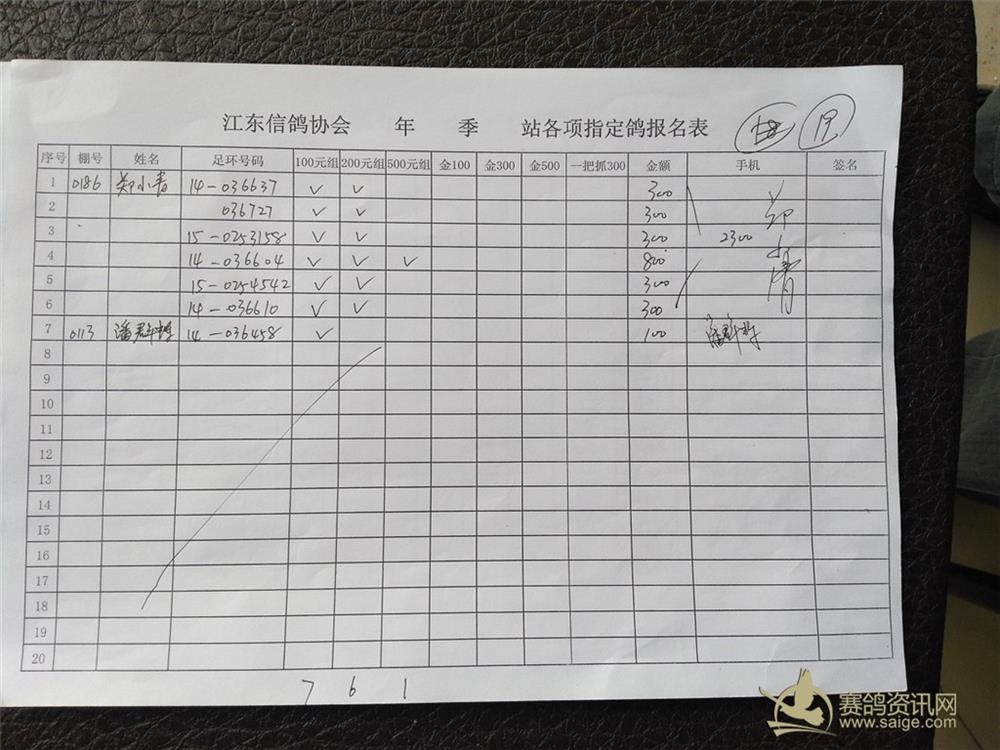 江东信鸽协会 年 季 站各项指定鸽报名表
序号 棚号 姓名 足环号码 100元组 200元组 500元组 金100 金300 金500 一把抓300 金额 手机 签名
1 0186 郑小清 14-036637 √ √ 300
2 036727 √ √ 300
3 15-0253158 √ √ 300 2300
4 14-036604 √ √ √ 800
5 15-0254542 √ √ 300
6 14-036610 √ √ 300
7 0113 潘 14-036458 √ 100
8
9
10
11
12
13
14
15
16
17
18
19
20
7 6 1
赛鸽资讯网
www.saige.com